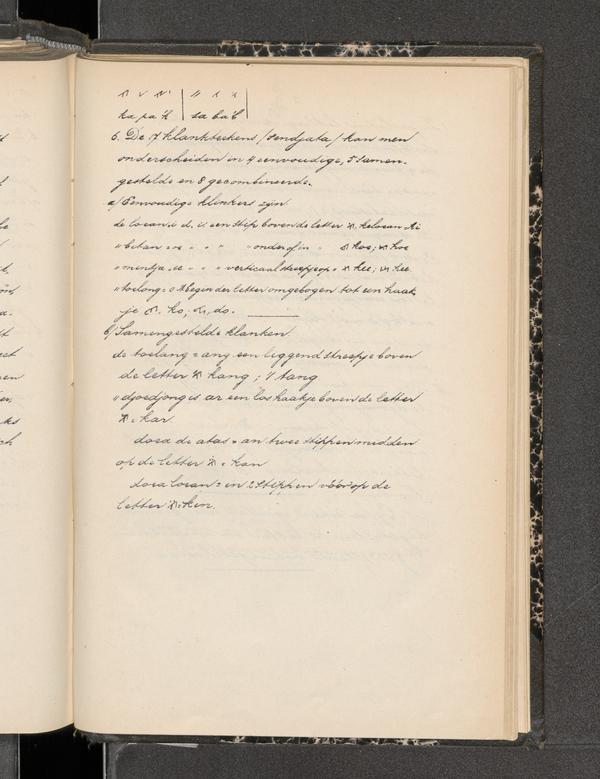 ka pa 'k | sa ba 'b |
6. De 17 klankteekens /sendjata/ kan men
onderscheiden in 4 eenvoudige, 5 samen-
gestelde en 8 gecombineerde.
a/ Eenvoudige klinkers zijn
de loean i d. i. een stip boven de letter keloean Ki
" bitan = oe " " " " onder of in " koe; koe
" mintja ee " " " verticaal streepje op " kee; kee
" toelong = o 't begin der letter omgebogen tot een haak-
je ko, do.
b/ Samengestelde klanken
de toelang = ang een liggend streepje boven
de letter kang; 't tang
" djoedjong is ar een los haakje boven de letter
= kar
doea de atas = an twee stippen midden
op de letter = kan
doea loean = in 2 stippen vóór op de
letter = kin.